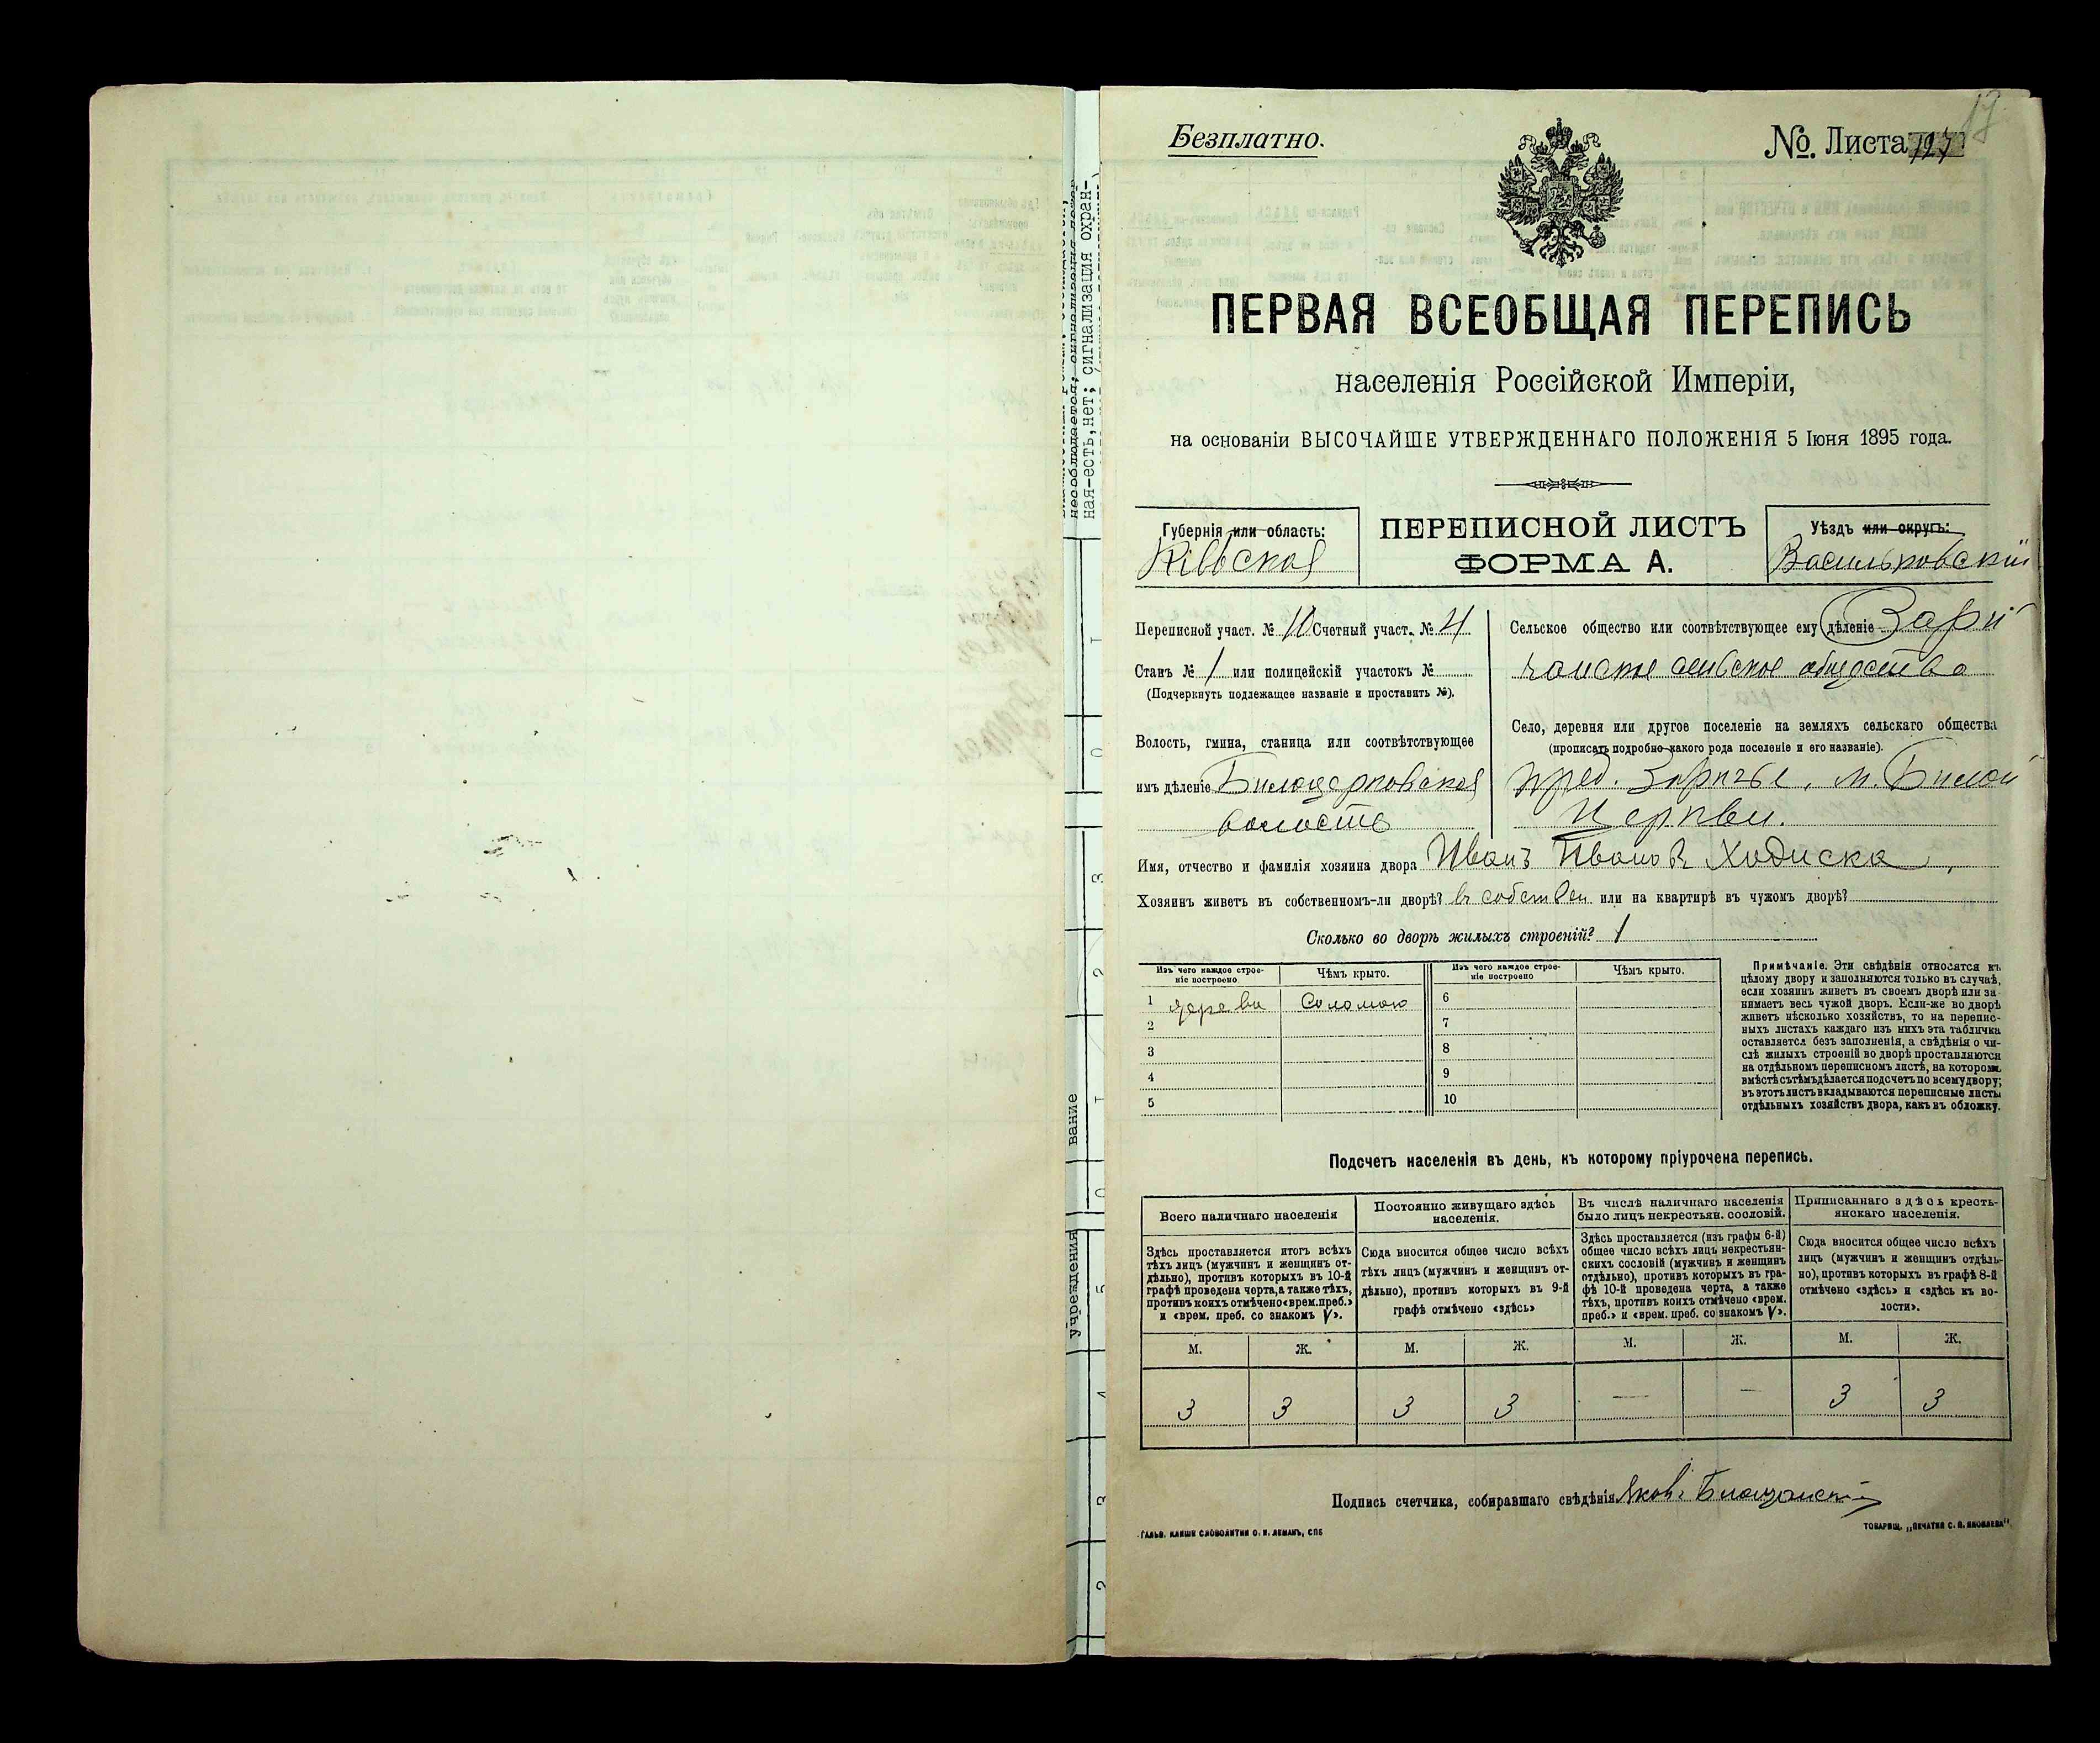 необходимо; сигнализация пожар-
ная-есть,нет; сигнализация охран-
вание
учреждения
Безплатно.
№. Листа 127
17
ПЕРВАЯ ВСЕОБЩАЯ ПЕРЕПИСЬ
населенія Россійской Имперіи,
на основаніи ВЫСОЧАЙШЕ УТВЕРЖДЕННАГО ПОЛОЖЕНІЯ 5 Іюня 1895 года.
Губернія или область:
Кіевская
ПЕРЕПИСНОЙ ЛИСТЪ
ФОРМА А.
Уѣздъ или округъ:
Васильковскій
Переписной участ. № 10 Счетный участ. № 4
Станъ № 1 или полицейскій участокъ №
(Подчеркнуть подлежащее названіе и проставить №).
Волость, гмина, станица или соотвѣтствующее
имъ дѣленіе Билоцерковская
волость
Сельское общество или соотвѣтствующее ему дѣленіе Зари
общества
Село, деревня или другое поселеніе на земляхъ сельскаго общества
(прописать подробно какого рода поселеніе и его названіе).
пред. Заричье, м. Билой
Церкви.
Имя, отчество и фамилія хозяина двора Иванъ Ивановъ Ходиска
Хозяинъ живетъ въ собственномъ-ли дворѣ? въ собствен или на квартирѣ въ чужомъ дворѣ?
Сколько во дворѣ жилыхъ строеній? 1
Изъ чего каждое строе-
ніе построено
Чѣмъ крыто.
Изъ чего каждое строе-
ніе построено
Чѣмъ крыто.
1 дерева Соломою 6
2 7
3 8
4 9
5 10
Примѣчаніе. Эти свѣдѣнія относятся къ
цѣлому двору и заполняются только въ случаѣ,
если хозяинъ живетъ въ своемъ дворѣ или за-
нимаетъ весь чужой дворъ. Если-же во дворѣ
живетъ нѣсколько хозяйствъ, то на перепис-
ныхъ листахъ каждаго изъ нихъ эта табличка
оставляется безъ заполненія, а свѣдѣнія о чи-
слѣ жилыхъ строеній во дворѣ проставляются
на отдѣльномъ переписномъ листѣ, на которомъ
вмѣстѣ съ тѣмъ дѣлается подсчетъ по всему двору;
въ этотъ листъ вкладываются переписные листы
отдѣльныхъ хозяйствъ двора, какъ въ обложку.
Подсчетъ населенія въ день, къ которому пріурочена перепись.
Всего наличнаго населенія
Здѣсь проставляется итогъ всѣхъ
тѣхъ лицъ (мужчинъ и женщинъ от-
дѣльно), противъ которыхъ въ 10-й
графѣ проведена черта, а также тѣхъ,
противъ коихъ отмѣчено «врем. преб.»
и «врем. преб. со знакомъ V».
Постоянно живущаго здѣсь
населенія.
Сюда вносится общее число всѣхъ
тѣхъ лицъ (мужчинъ и женщинъ от-
дѣльно), противъ которыхъ въ 9-й
графѣ отмѣчено «здѣсь»
Въ числѣ наличнаго населенія
было лицъ некрестьян. сословій.
Здѣсь проставляется (изъ графы 6-й)
общее число всѣхъ лицъ некрестьян-
скихъ сословій (мужчинъ и женщинъ
отдѣльно), противъ которыхъ въ гра-
фѣ 10-й проведена черта, а также
тѣхъ, противъ коихъ отмѣчено «врем.
преб.» и «врем. преб. со знакомъ V».
Приписаннаго здѣсь кресть-
янскаго населенія.
Сюда вносится общее число всѣхъ
лицъ (мужчинъ и женщинъ отдѣль-
но), противъ которыхъ въ графѣ 8-й
отмѣчено «здѣсь» и «здѣсь къ во-
лости».
М. Ж. М. Ж. М. Ж. М. Ж.
3 3 3 3 — — 3 3
Подпись счетчика, собиравшаго свѣдѣнія Яковъ
ГАЛЬВ. КЛИШЕ СЛОВОЛИТНИ О. И. ЛЕМАНЪ, СПБ
ТОВАРИЩ. „ПЕЧАТНЯ С. П. ЯКОВЛЕВА“